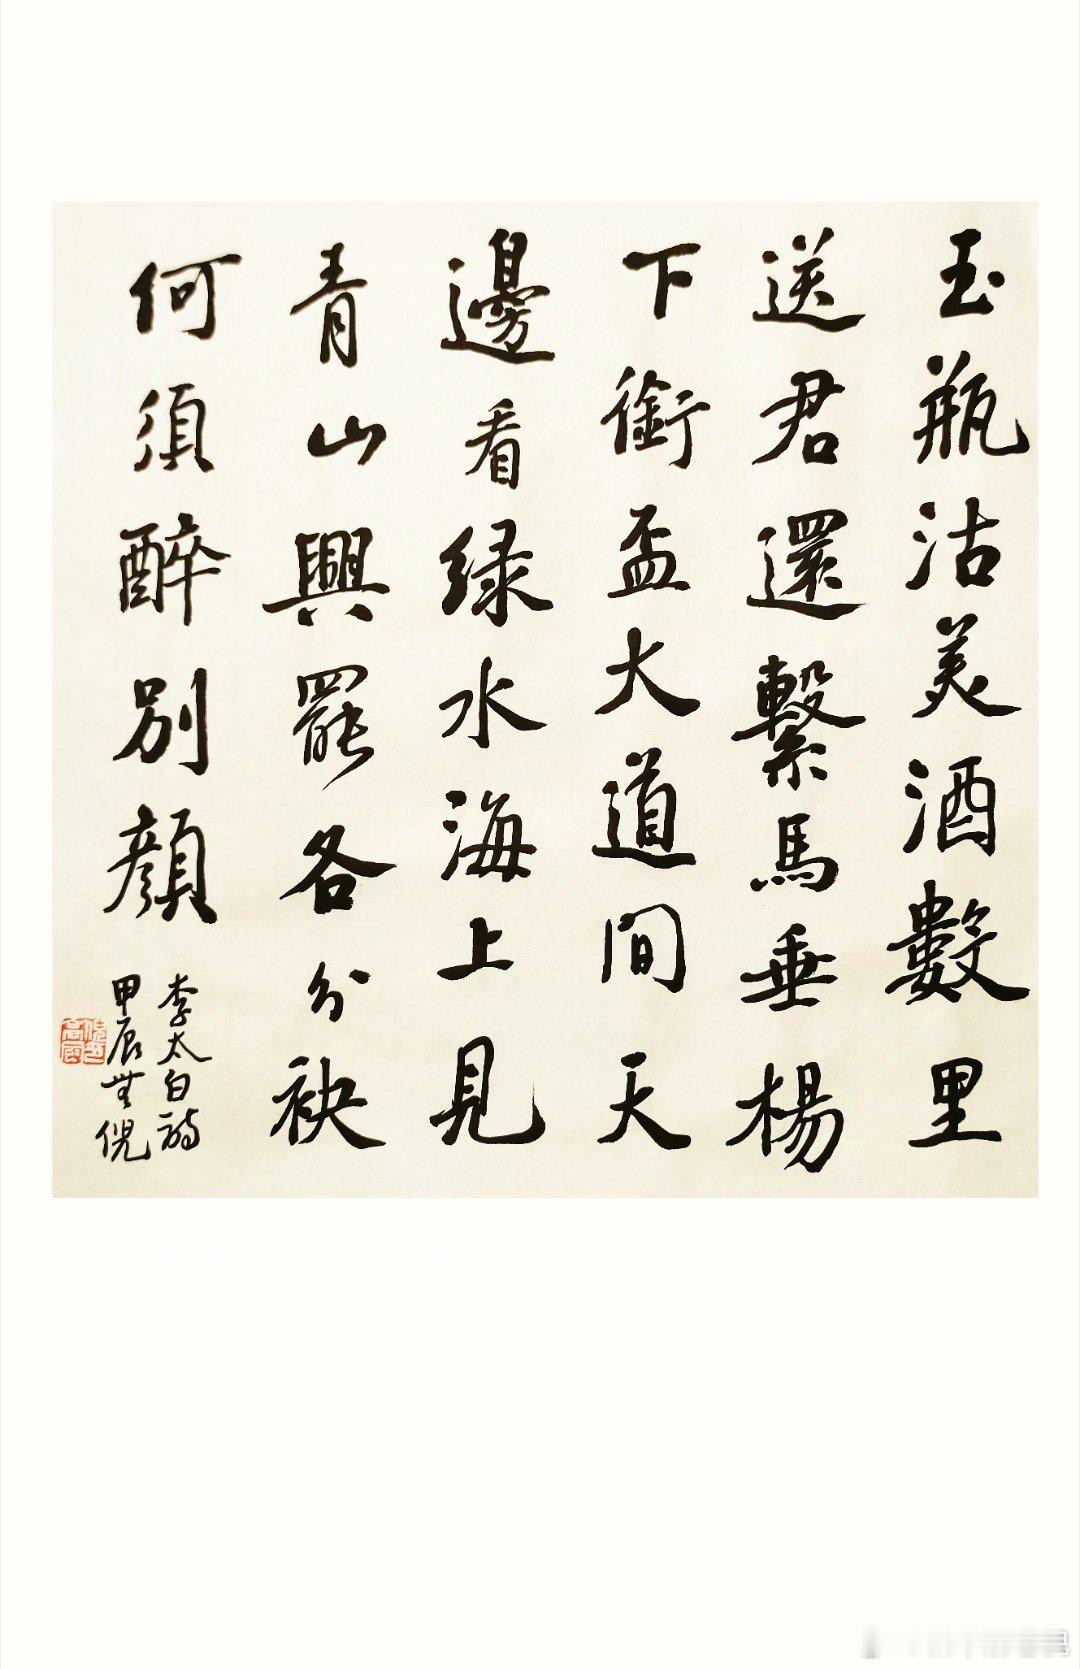 玉瓶沽美酒數里
送君還繫馬垂楊
下銜盃大道間天
邊看綠水海上見
青山興罷各分袂
何須醉別顏
李太白詩
甲辰無倪